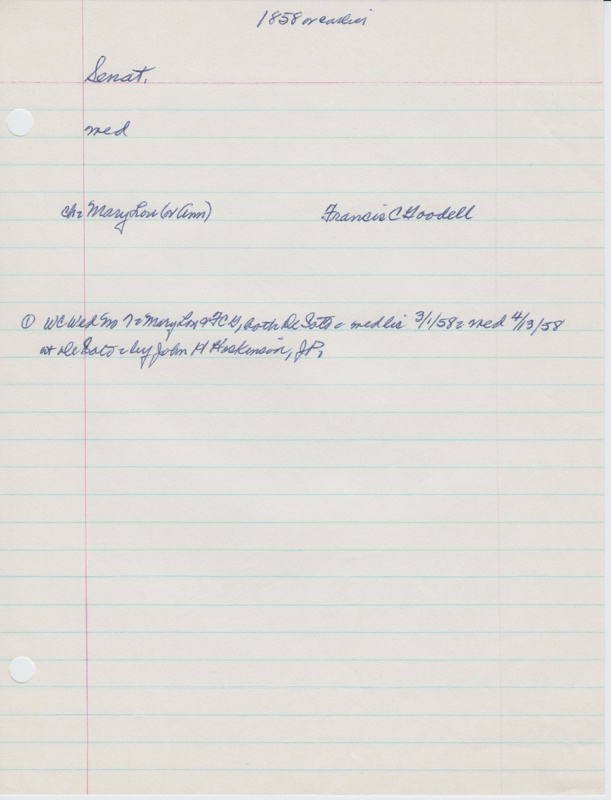 1858 or earlier
Senat.
wed
ch= Mary Lou (or Ann) Francis C Goodell
① WC Wed No 7= Mary Lou & FCG, both De Soto = wed lic 3/1/58 = wed 4/13/58
at De Soto = by John H Hoskinson, JP.